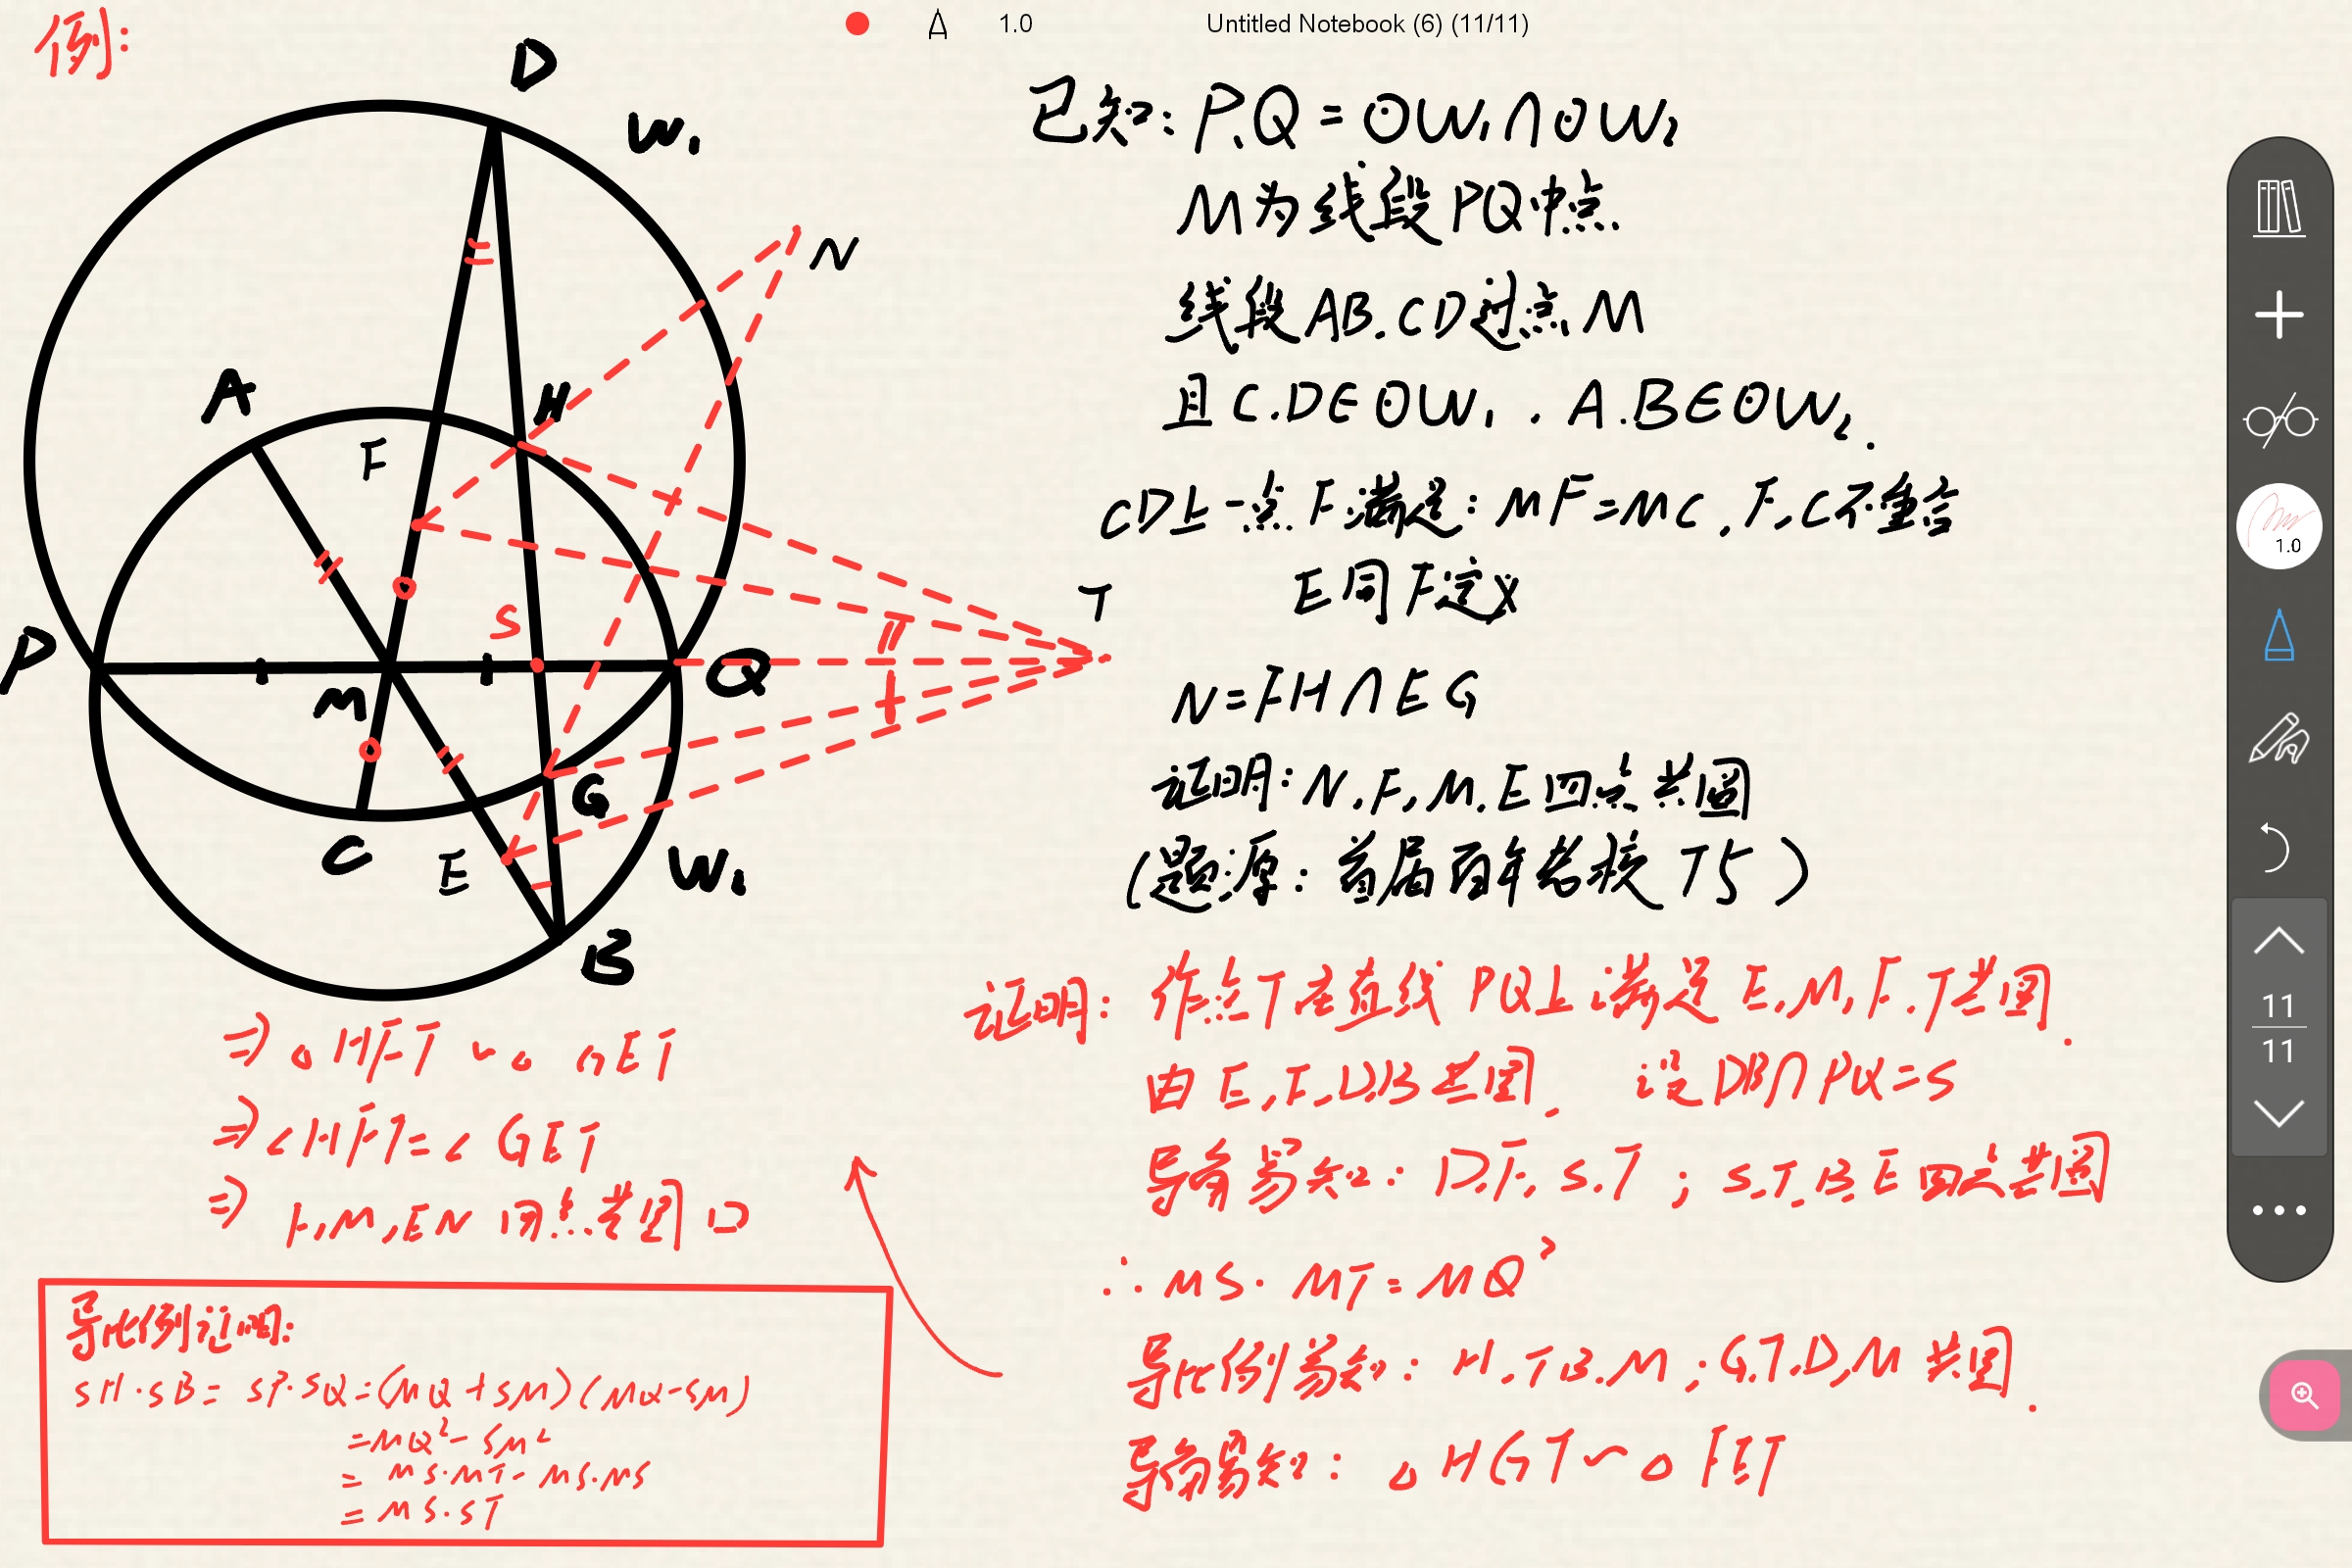 Untitled Notebook (6) (11/11)
1.0
例:
D
W₁
N
A
H
F
S
T
P
M
Q
C
E
G
W₂
B
已知: P.Q = ⊙W₁∩⊙W₂
M为线段PQ中点.
线段AB.CD过点M
且C.D∈⊙W₁ . A.B∈⊙W₂.
CD上一点F满足: MF=MC, F,C不重合
E同F定义
N=FH∩EG
证明: N,F,M,E四点共圆
(题源: 首届百年老校T5)
证明: 作点T在直线PQ上满足E,M,F.T共圆.
由E,F,D,B共圆. 设DB∩PQ=S
导角易知: D.F,S.T ; S.T.B.E四点共圆
∴MS·MT=MQ²
导比例易知: H.T.B.M ; G.T.D,M共圆.
导角易知: △HGT∽△FET
⇒△HFT∽△GET
⇒∠HFT=∠GET
⇒F,M,E,N四点共圆口
导比例证明:
SH·SB=SP·SQ=(MQ+SM)(MQ-SM)
=MQ²-SM²
=MS·MT-MS·MS
=MS·ST
1.0
11
11